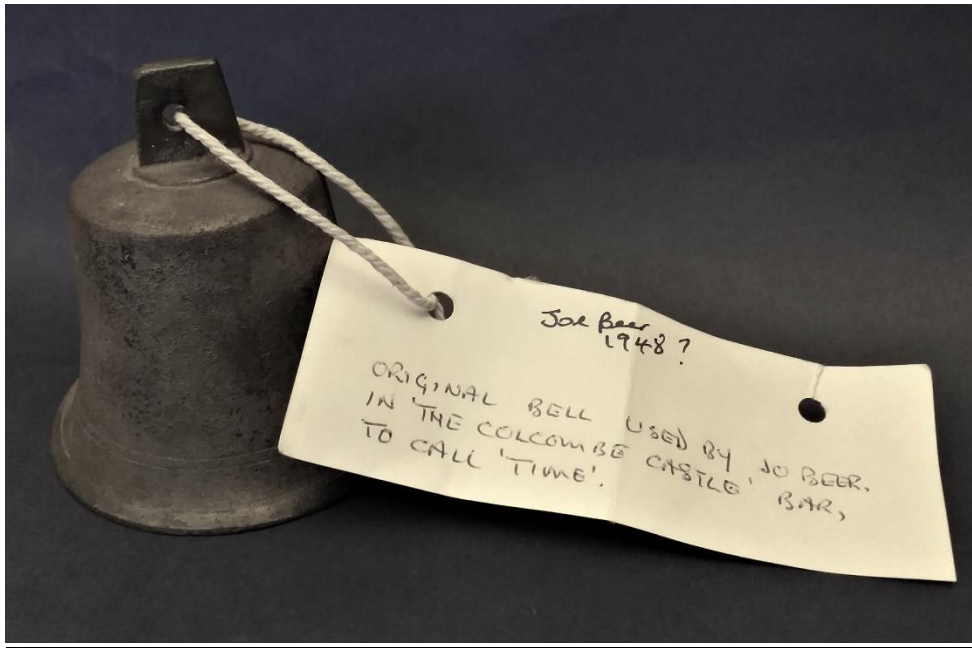 Joe Beer
1948?
ORIGINAL BELL USED BY JO BEER.
IN 'THE COLCOMBE CASTLE' BAR,
TO CALL 'TIME'.